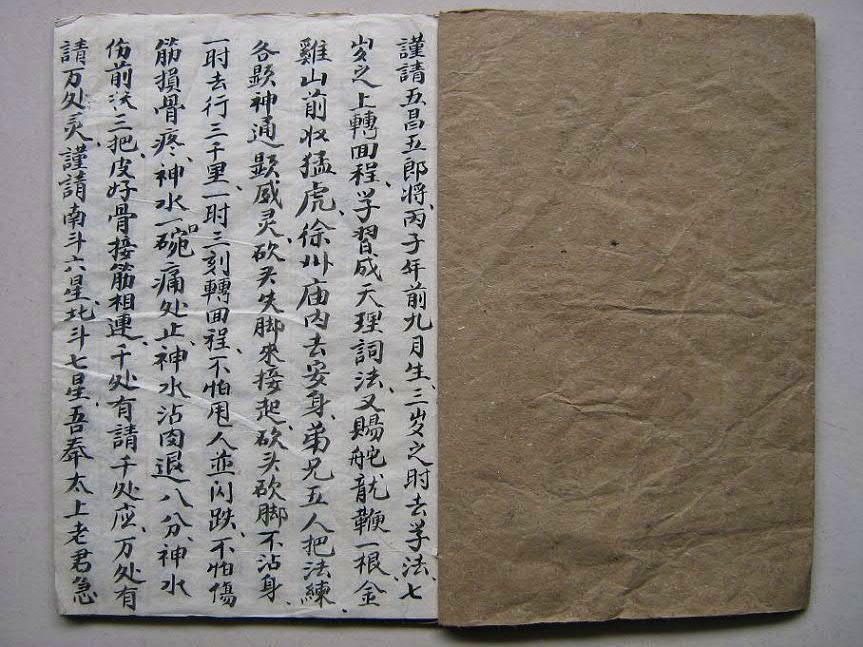 謹請五昌五郎將、丙子年前九月生、三岁之时去学法、七
岁之上轉回程、学習成天理詞法、又賜蛇龍鞭一根、金
雞山前收猛虎、徐州庙内去安身、弟兄五人把法練、
各顕神通顕威灵、砍头失脚來接起、砍头砍脚不沾身、
一时去行三千里、一时三刻轉回程、不怕甩人並闪跌、不怕傷
筋損骨疼、神水一碗痛处止、神水沾肉退八分、神水
伤前三把、皮好骨接筋相連、千处有請千处应、万处有
請万处灵、謹請南斗六星、北斗七星、吾奉太上老君急